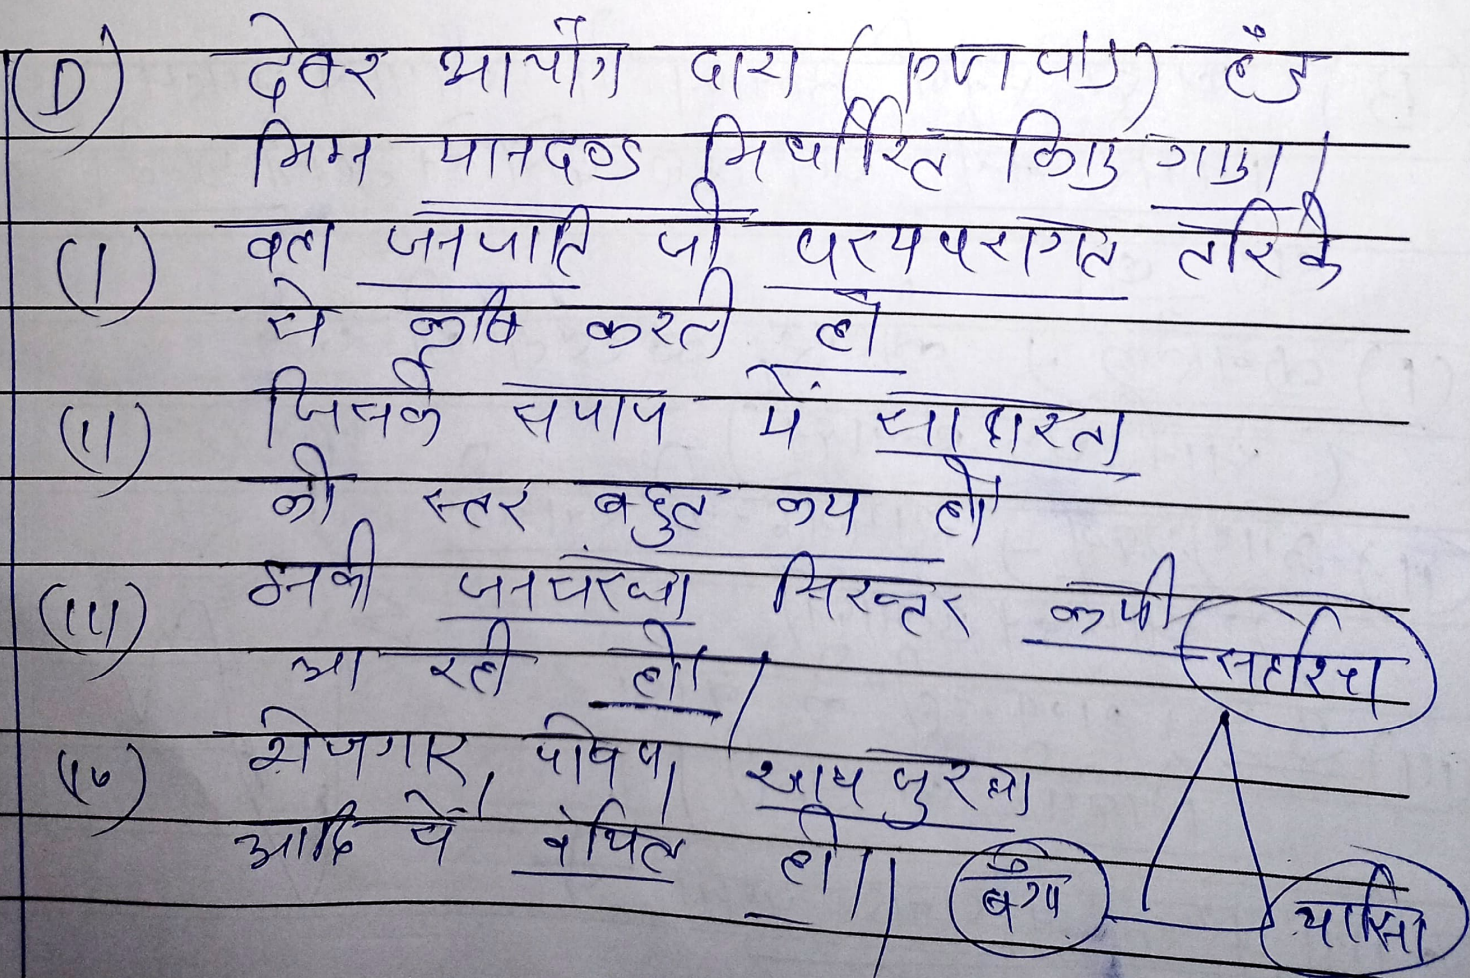 (D) देबर आयोग द्वारा ( ) हैंड
निम्न मानदण्ड निर्धारित किए गए।
(I) वह जनजाति जो परम्परागत तरिके
से कृषि करती हो
(II) जिनके समाज में साक्षरता
की स्तर बहुत कम हो।
(III) उनकी जनसंख्या निरन्तर कमी
आ रही हो।
(IV) रोजगार, पोषण, खाद्य सुरक्षा
आदि से वंचित हो।
सहरिया
बैगा